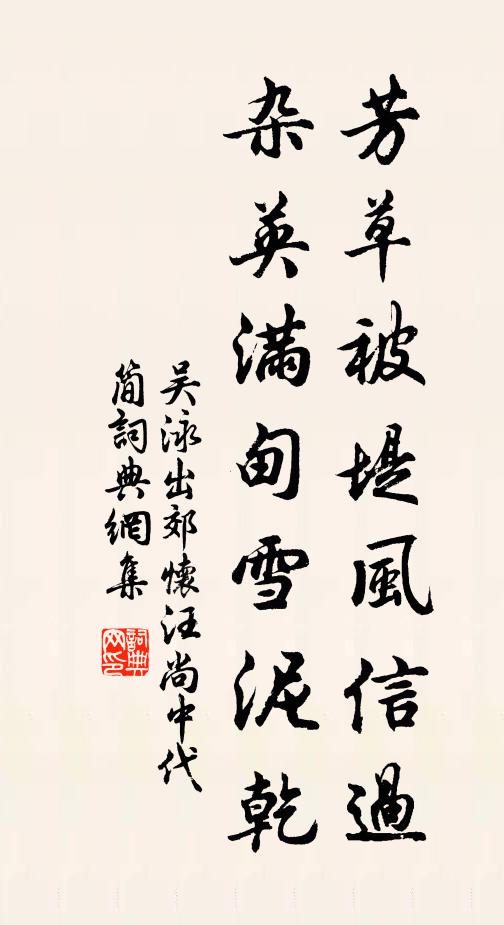 芳草被堤風信過
杂英满甸雪泥乾
吴泳出郊懷汪尚中代
簡詞典網集
詞典
网印